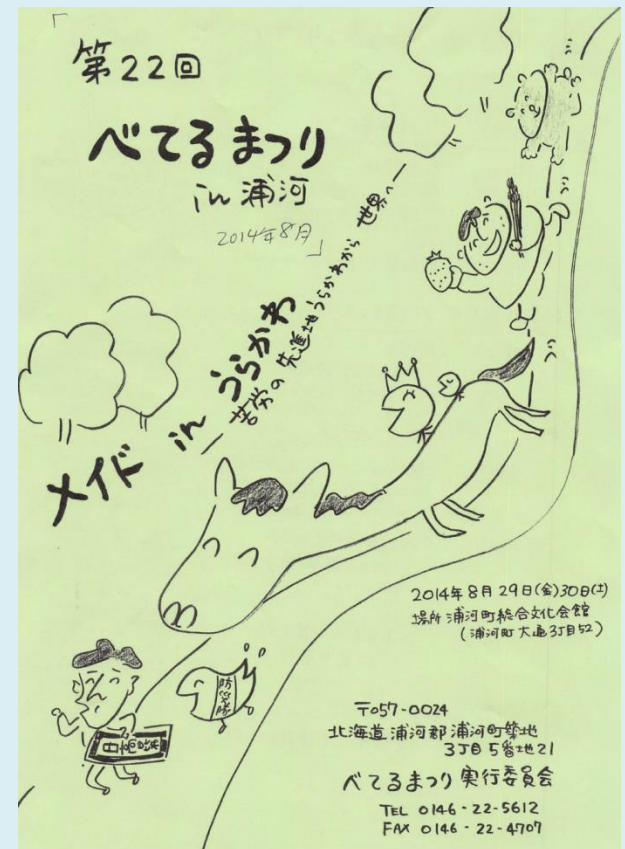 「
第22回
べてるまつり
in 浦河
2014年8月
」
メイド in うらかわ
―苦労の先進地うらかわから 世界へ―
2014年8月29日(金)30日(土)
場所 浦河町総合文化会館
(浦河町大通3丁目52)
防災隊
日高昆布
〒057-0024
北海道浦河郡浦河町築地
3丁目5番地21
べてるまつり実行委員会
TEL 0146-22-5612
FAX 0146-22-4707